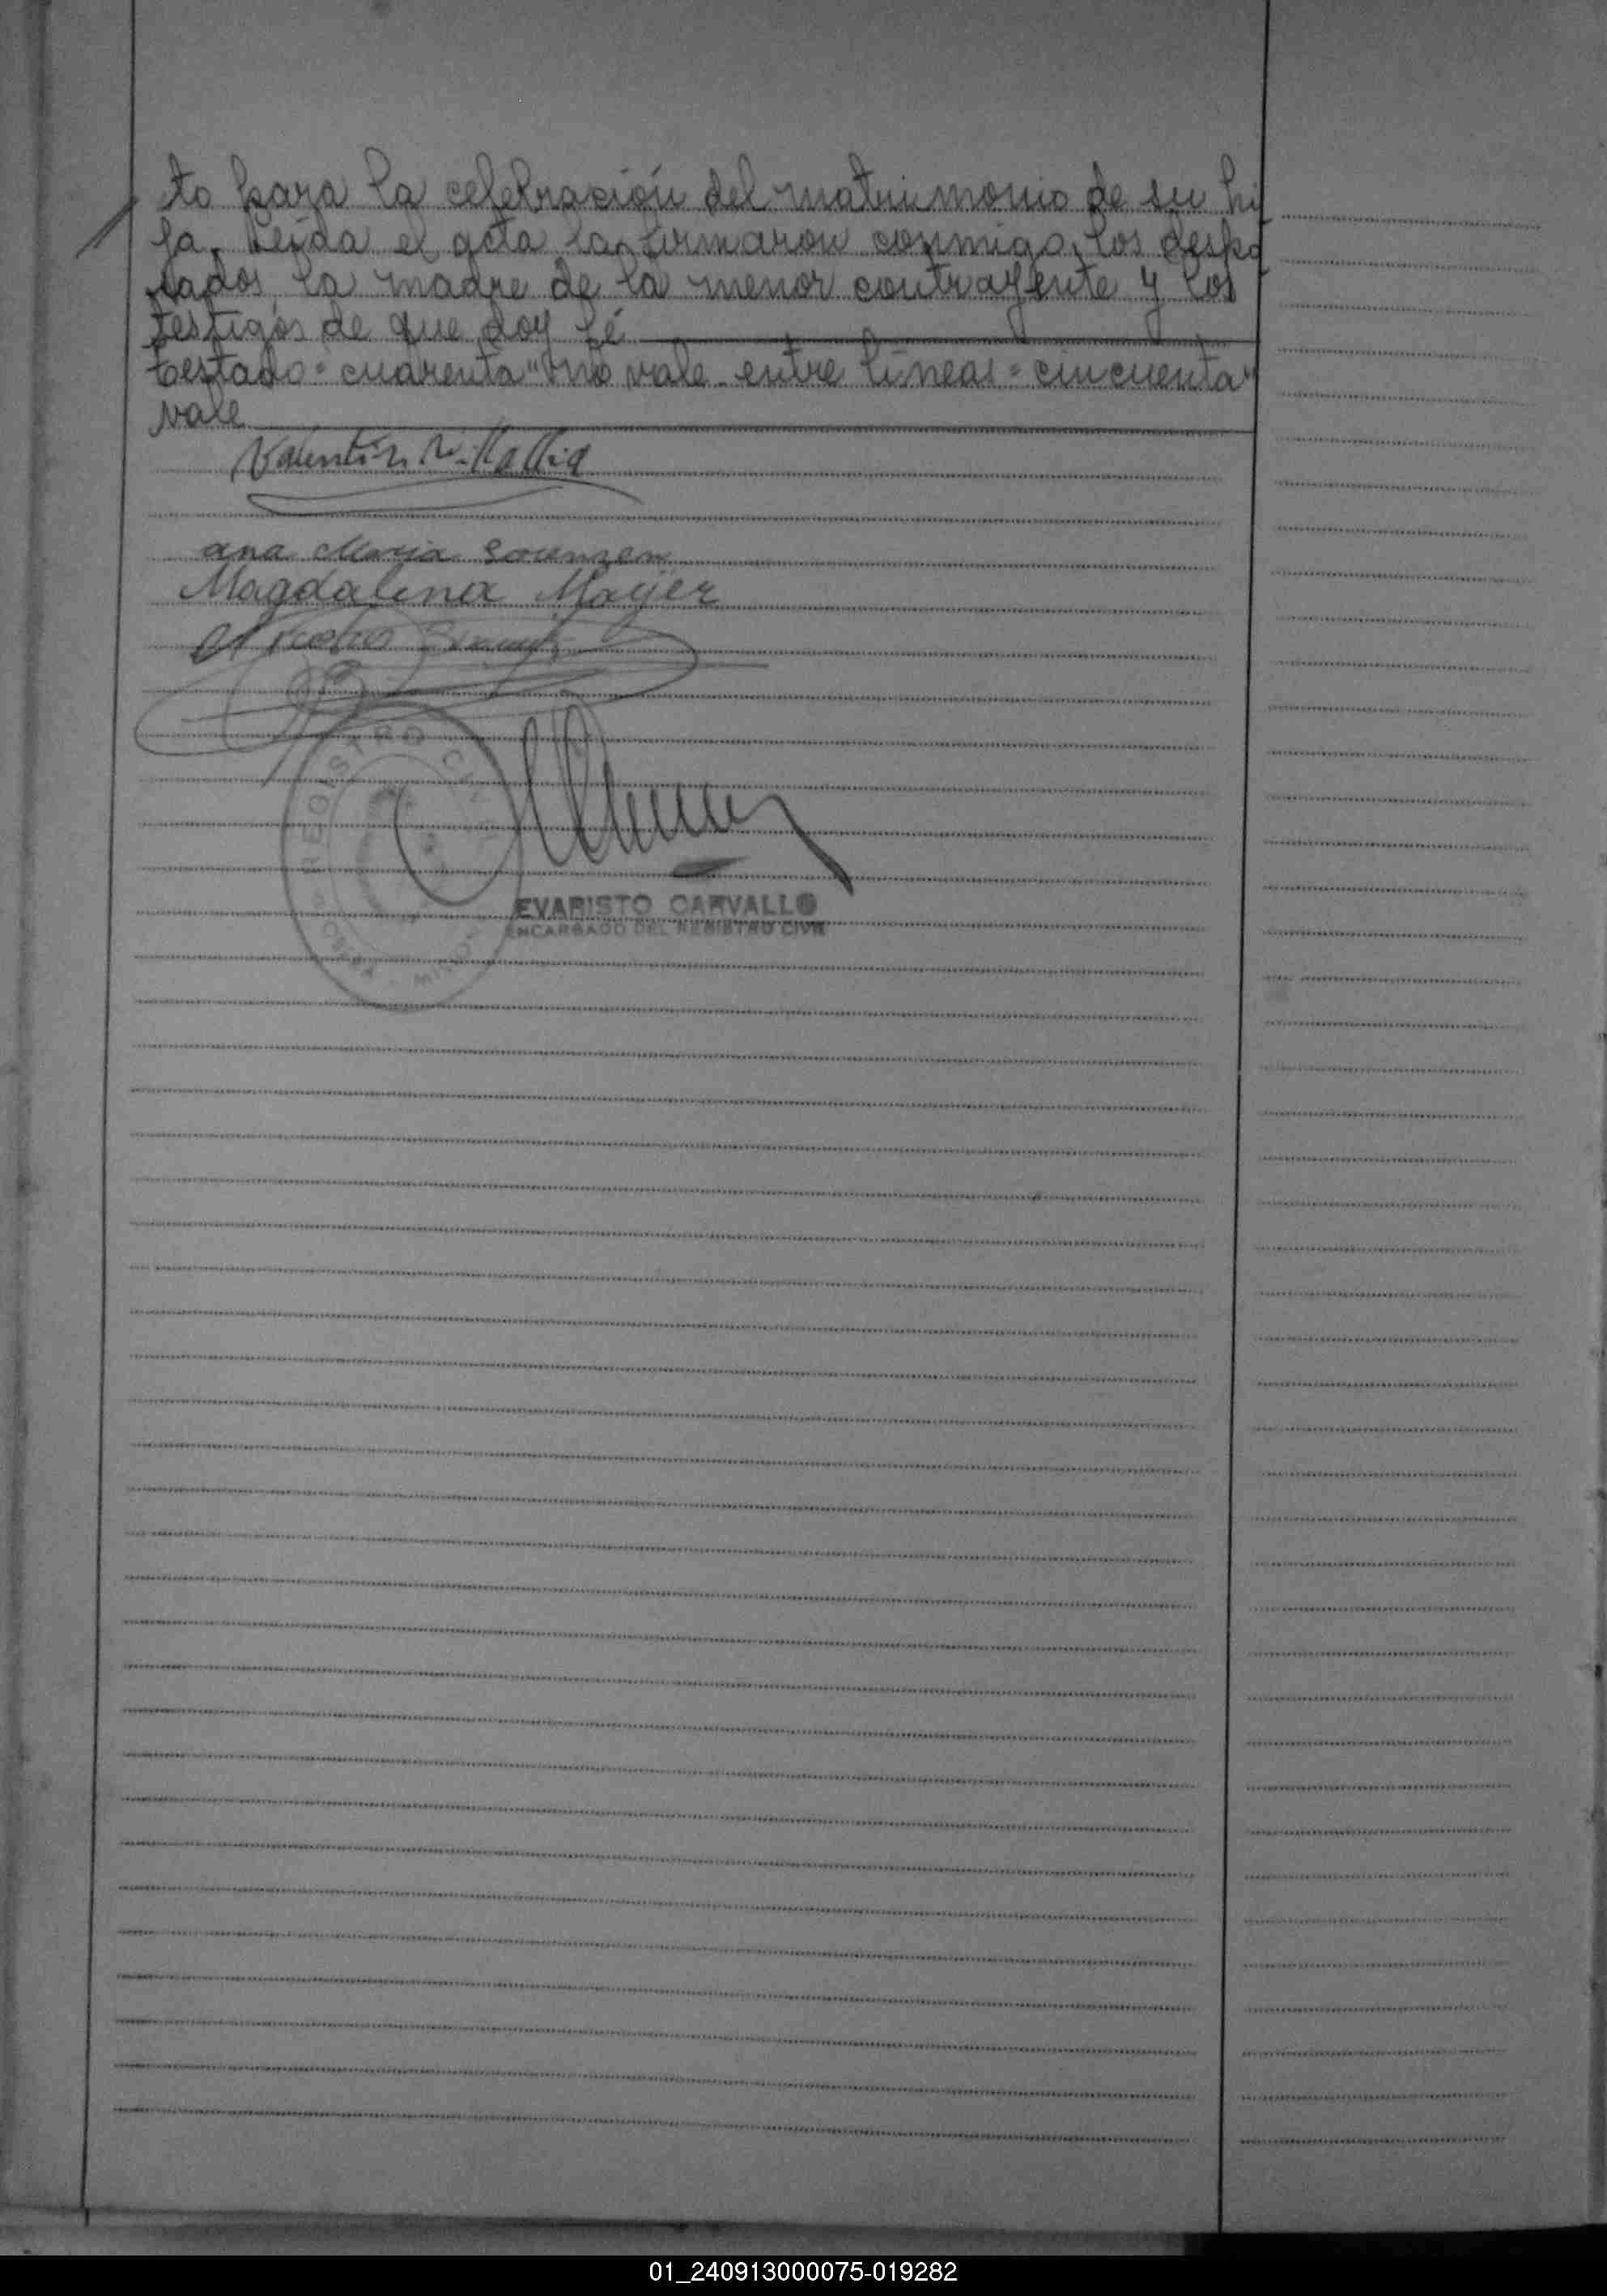 to para la celebración del matrimonio de su hi
ja. Leída el acta la firmaron conmigo, los despo
sados, la madre de la menor contrayente y los
testigos de que doy fé
Testado "cuarenta" no vale - entre líneas = cincuenta"
vale
Valentín Villalba
ana Maria Sorensen
Magdalena Mayer
REGISTRO CIVIL
EVARISTO CARVALLO
ENCARGADO DEL REGISTRO CIVIL
01_240913000075-019282